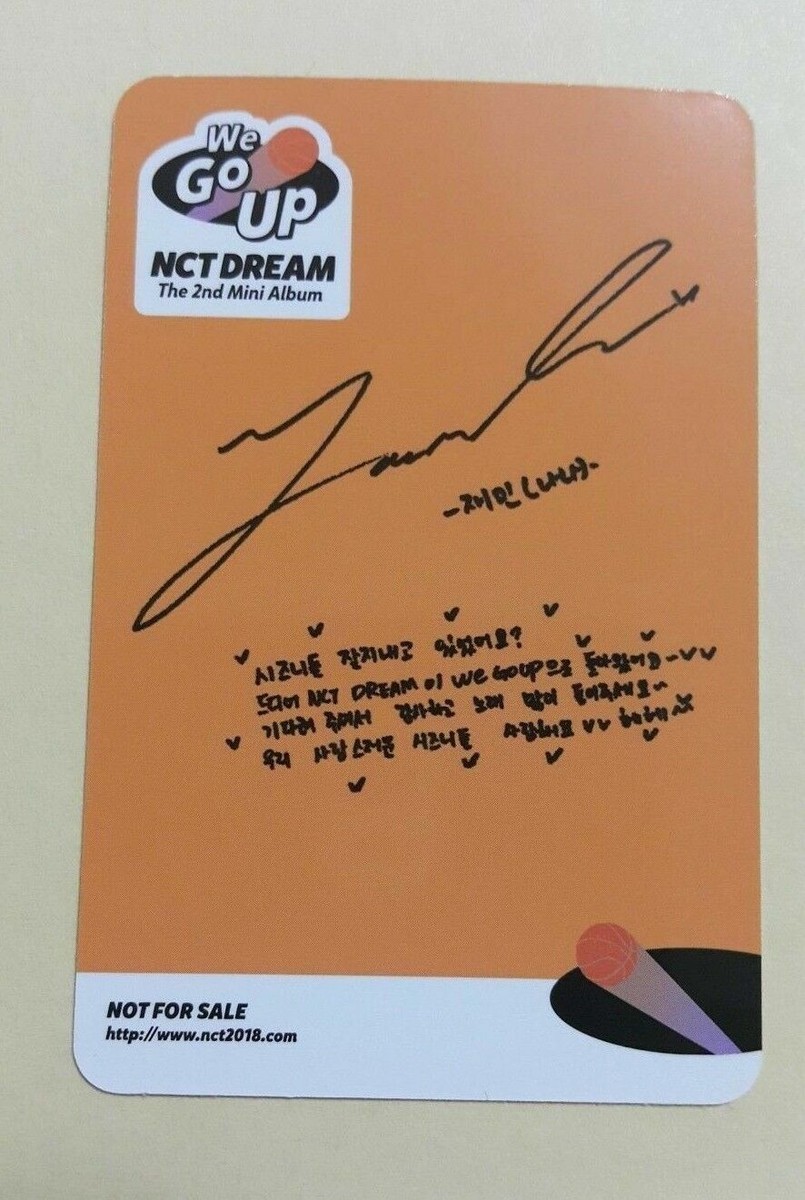 We
Go
Up
NCT DREAM
The 2nd Mini Album
-재민(나나)-
시즈니들 잘지내고 있었어요?
뜨디어 NCT DREAM이 We GO UP으로 돌아왔어요~
기다려 주셔서 감사하고 노래 많이 들어주세요~
우리 사랑스러운 시즈니들 사랑해요 헤헤
NOT FOR SALE
http://www.nct2018.com